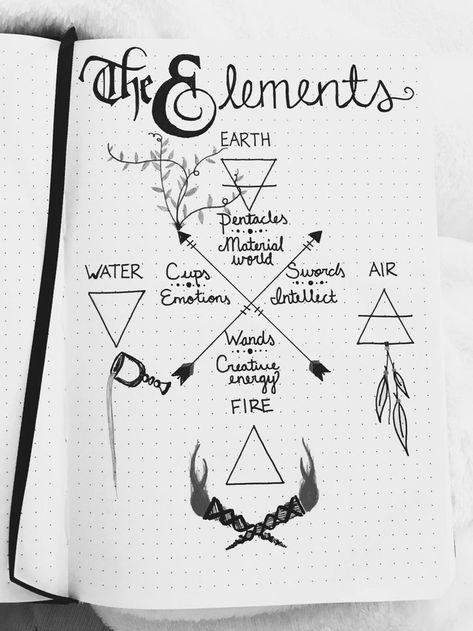 The Elements
EARTH
Pentacles
Material
world
WATER
Cups
Emotions
Swords
Intellect
AIR
Wands
Creative
energy
FIRE